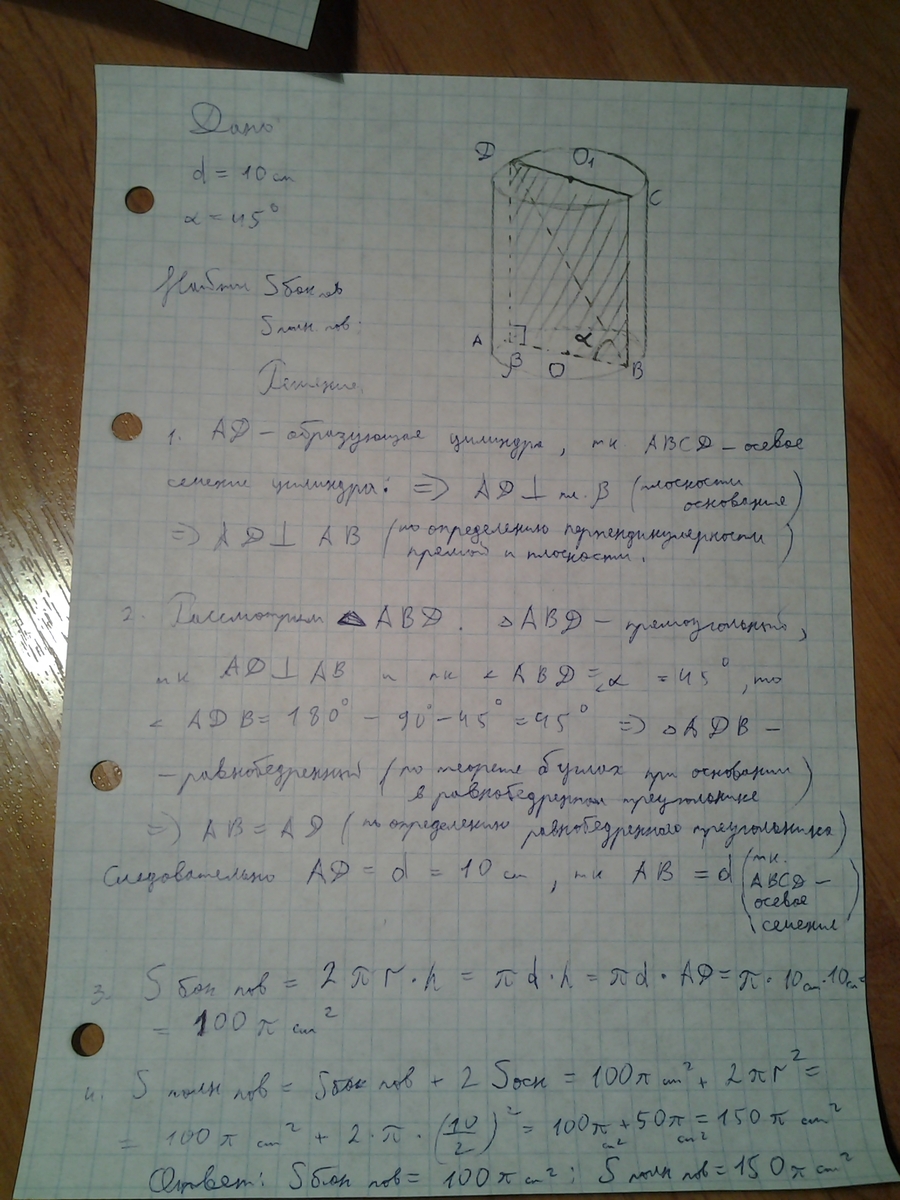 Дано
d = 10 см
α = 45°
Найти S бок пов
S полн пов.
Решение.
D O₁ C
A β O B α
1. AD – образующая цилиндра, тк ABCD – осевое
сечение цилиндра. => AD ⊥ пл. β (плоскости основания)
=> AD ⊥ AB (по определению перпендикулярности
прямой и плоскости.)
2. Рассмотрим △ABD. △ABD – прямоугольный,
тк AD ⊥ AB и тк < ABD = <α = 45°, то
< ADB = 180° – 90° – 45° = 45° => △ADB –
– равнобедренный (по теореме о углах при основании
в равнобедренном треугольнике)
=> AB = AD (по определению равнобедренного треугольника)
Следовательно AD = d = 10 см, тк AB = d (тк.
ABCD –
осевое
сечение)
3. S бок пов = 2πr·h = πd·h = πd·AD = π·10см·10см =
= 100π см²
4. S полн пов = Sбок пов + 2 Sосн = 100π см² + 2πr² =
= 100π см² + 2·π·(10/2)² = 100π см² + 50π см² = 150π см²
Ответ: S бок пов = 100π см²; S полн пов = 150π см²